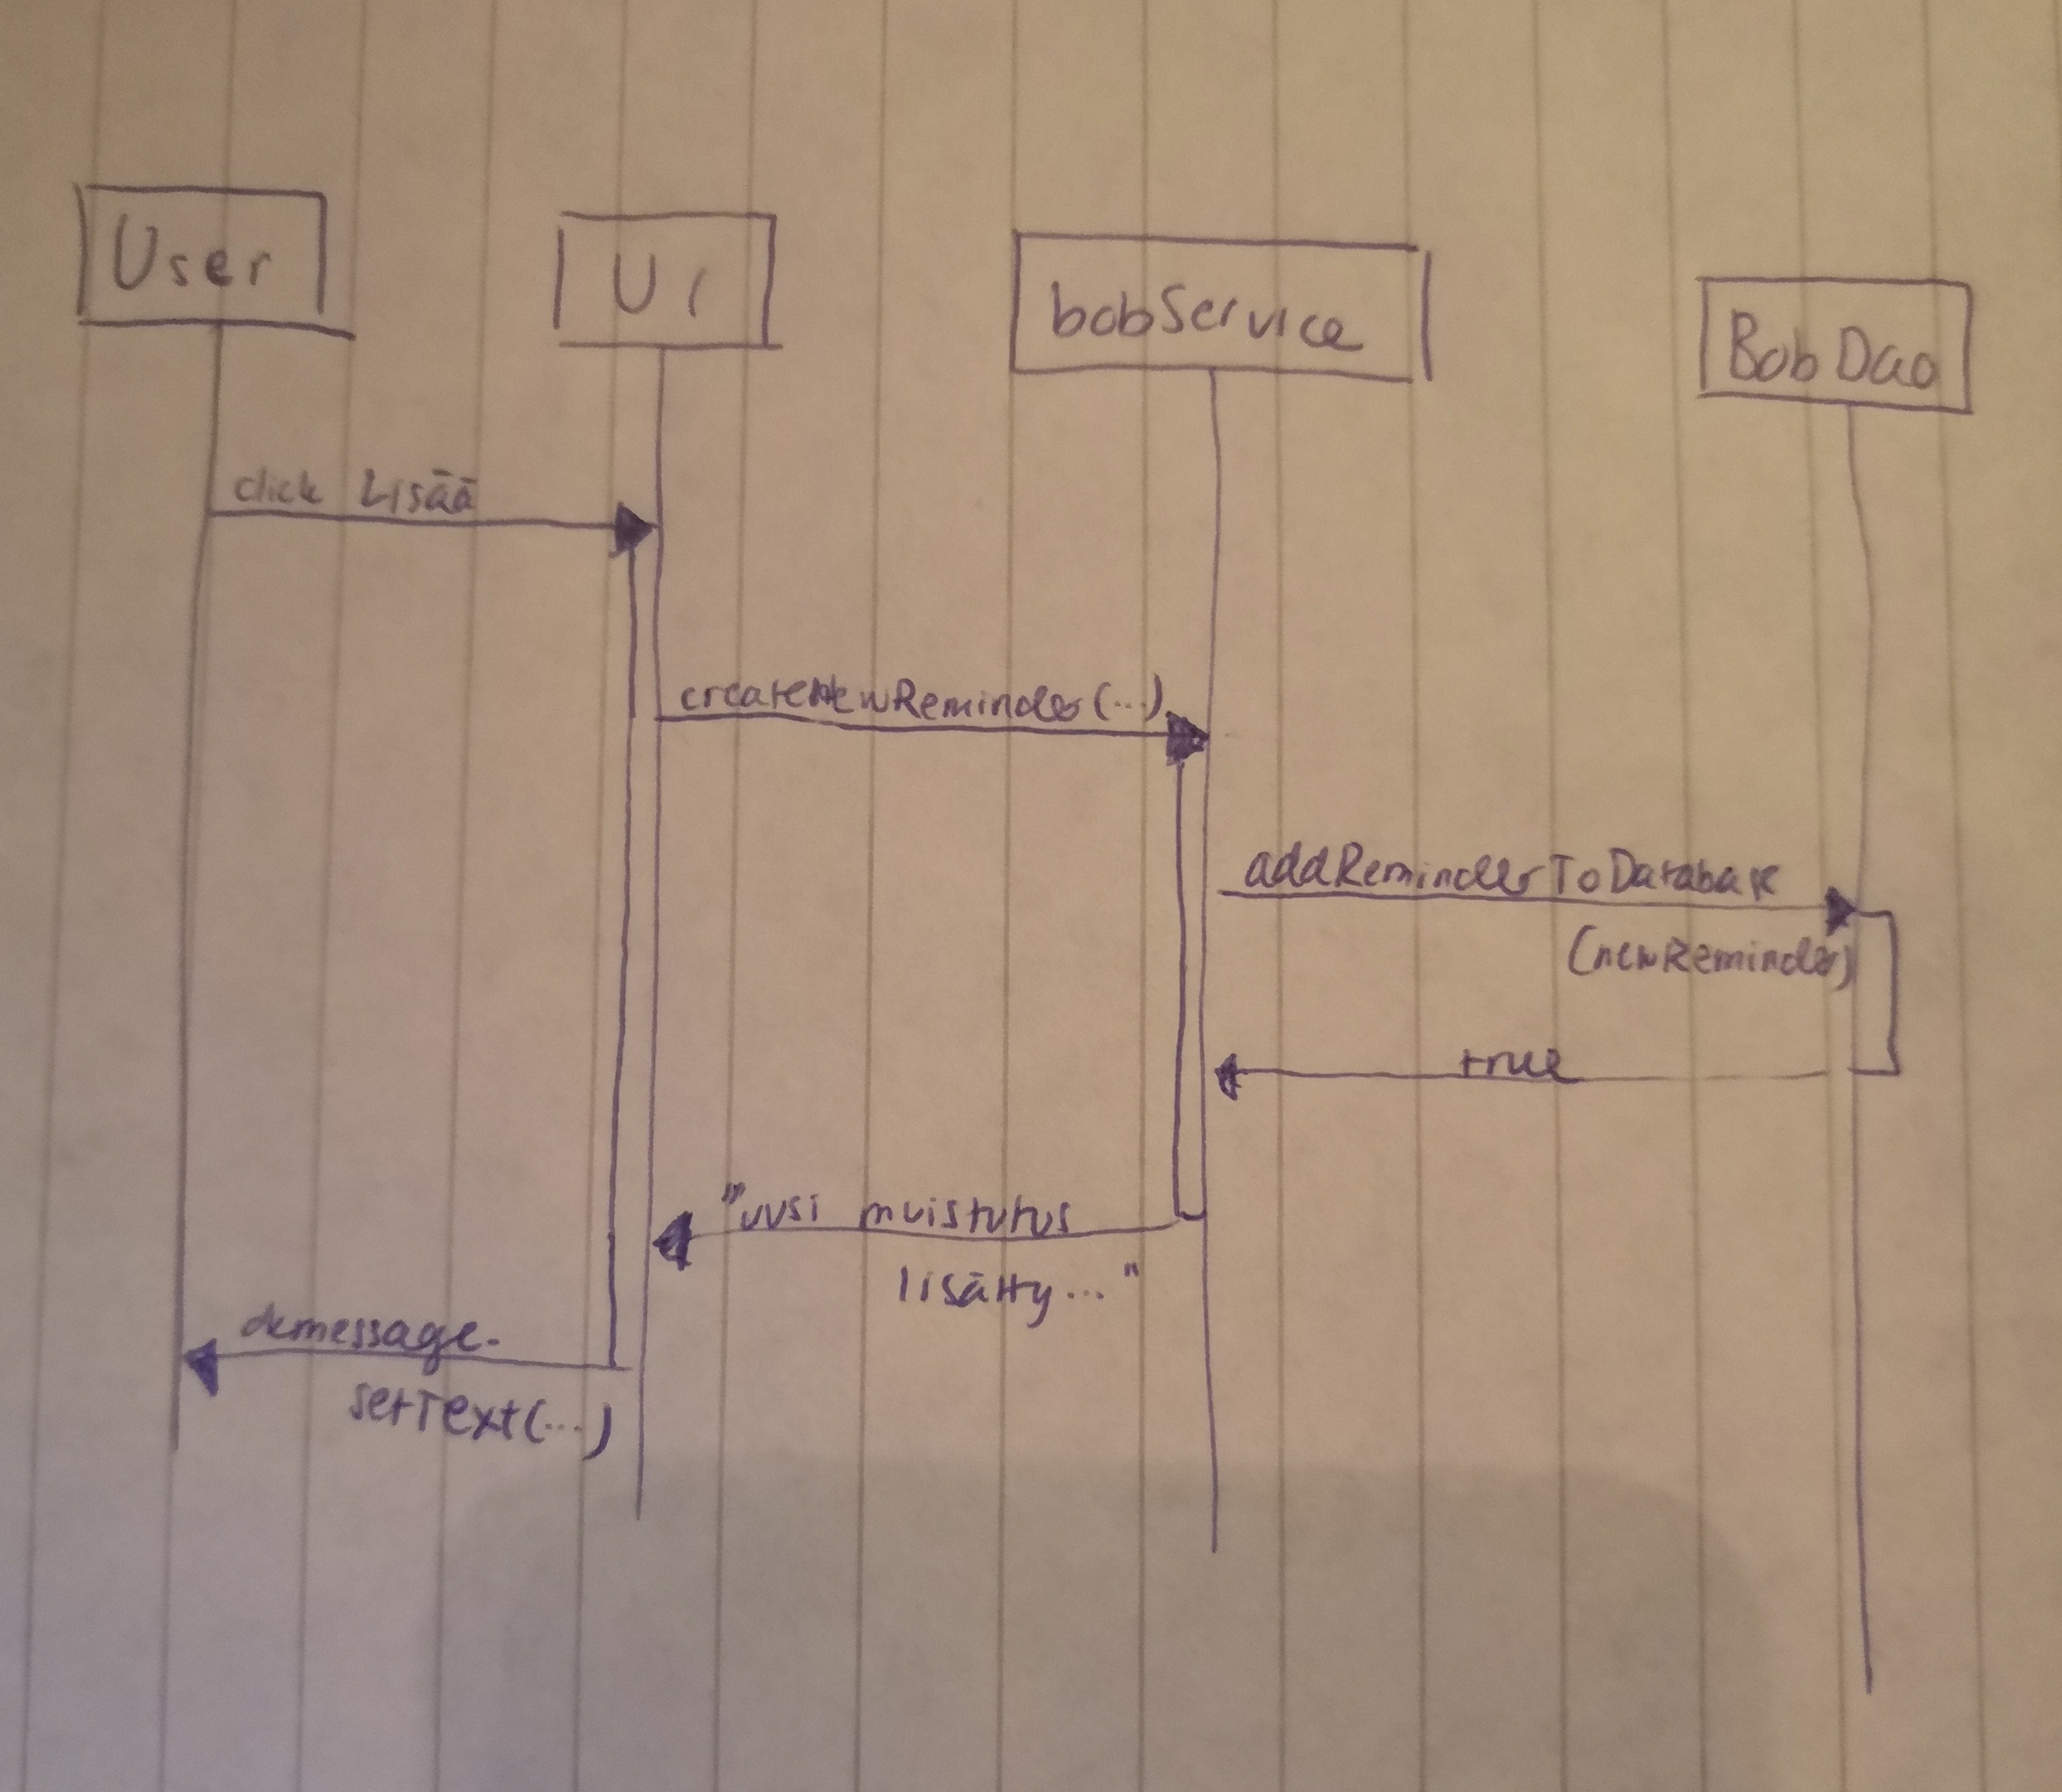 User
Ui
bobService
BobDao
click Lisää
createNewReminder(...)
addReminderToDatabase
(newReminder)
true
"uusi muistutus
lisätty..."
demessage.
setText(...)